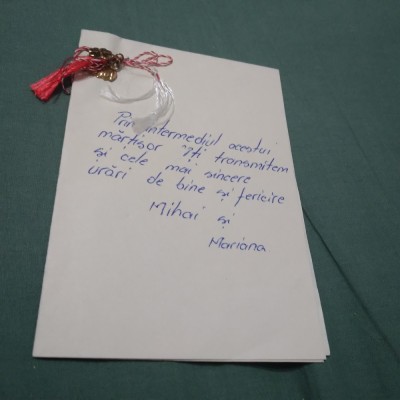 Prin intermediul acestui
mărțișor îți transmitem
și cele mai sincere
urări de bine și fericire
Mihai și
Mariana